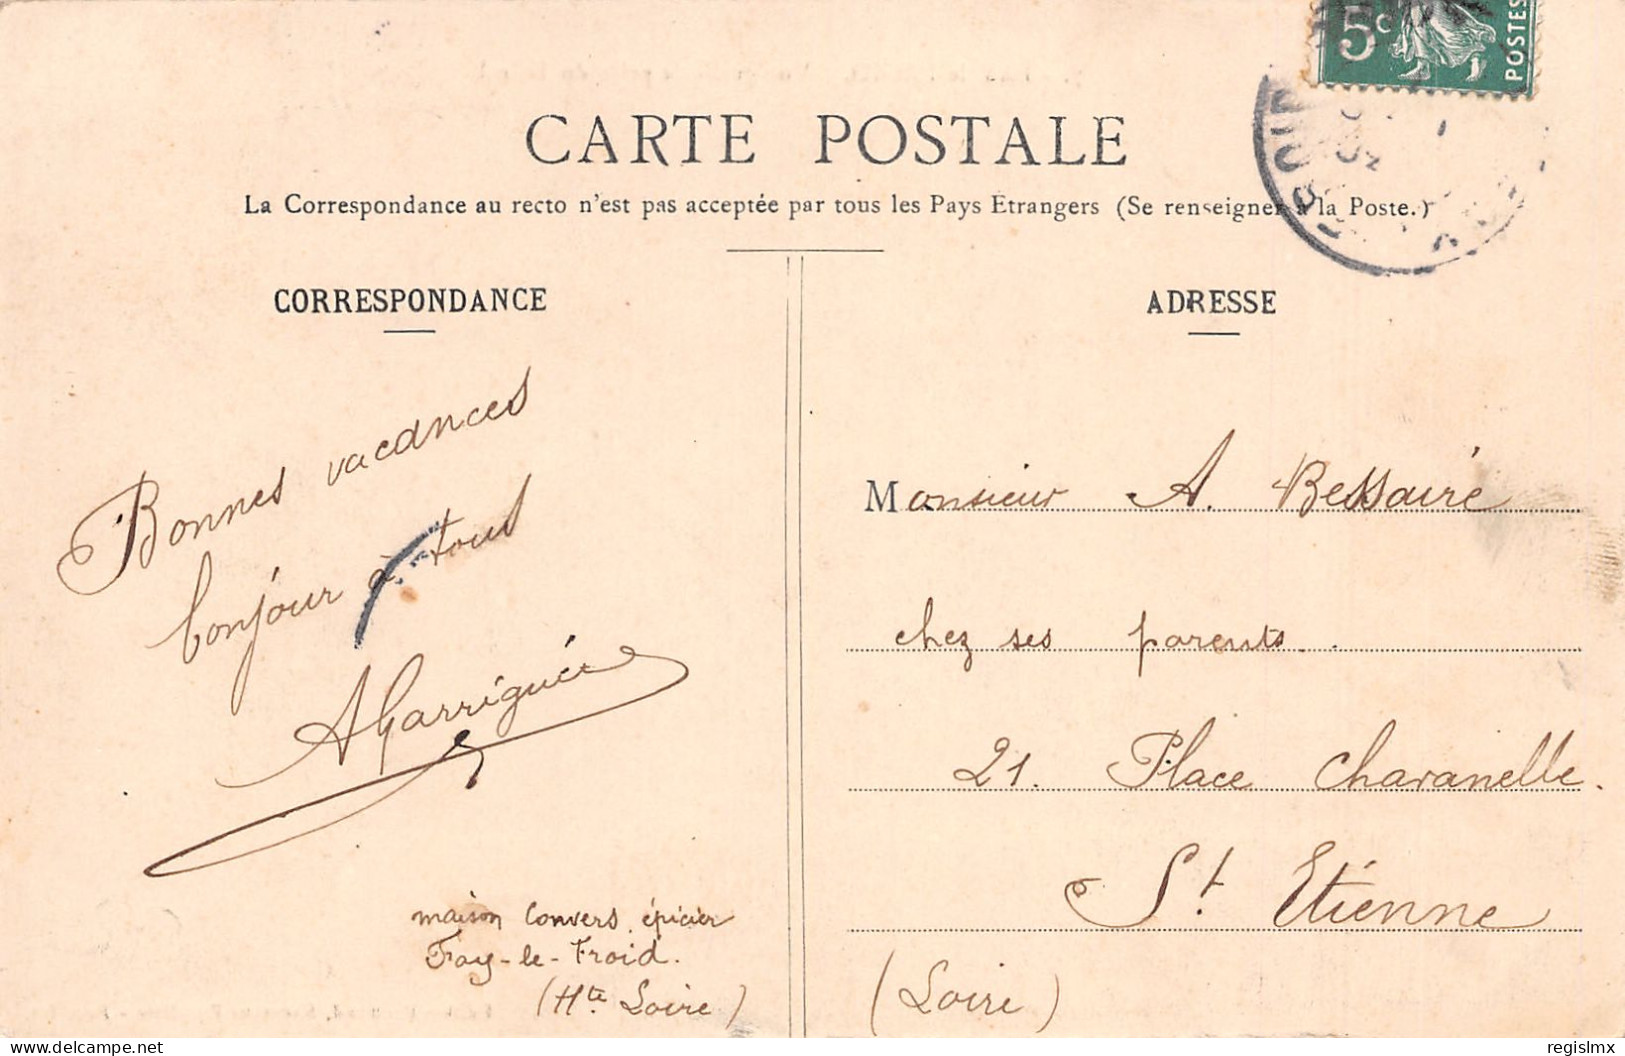 5c
POSTES
CARTE POSTALE
La Correspondance au recto n'est pas acceptée par tous les Pays Etrangers (Se renseigner à la Poste.)
CORRESPONDANCE
Bonnes vacances
bonjour à tous
AGarrigués
maison Convers, épicier
Fay-le-Froid.
(Hte Loire)
ADRESSE
Monsieur A. Bessaire
chez ses parents.
21. Place Chavanelle.
St. Etienne
(Loire)
regislmx